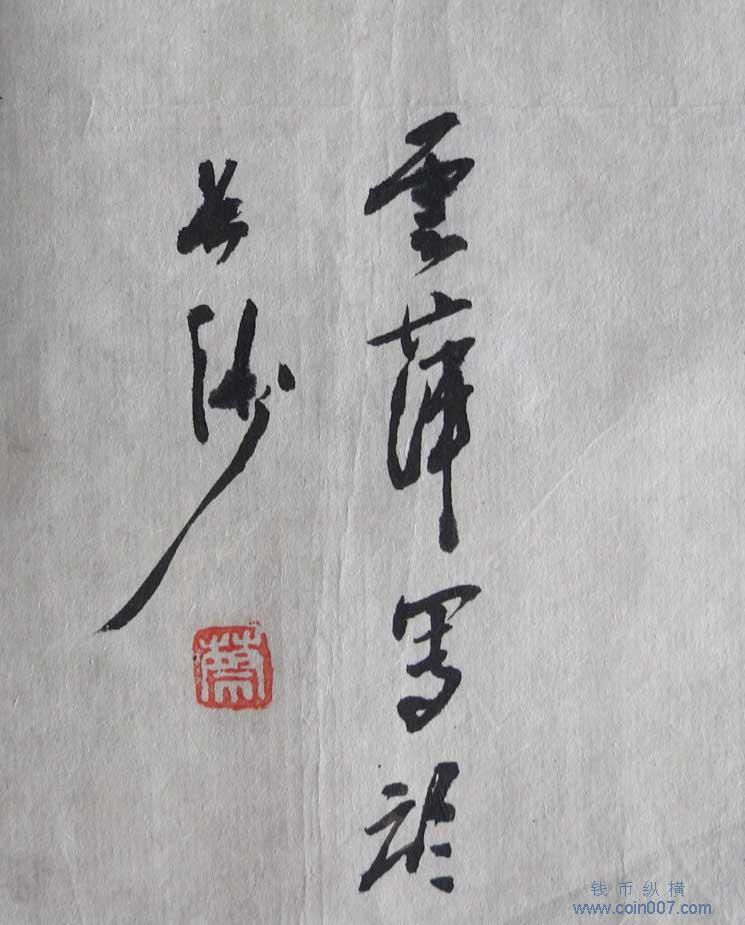 雲萍寫於
長沙
钱币纵横
www.coin007.com